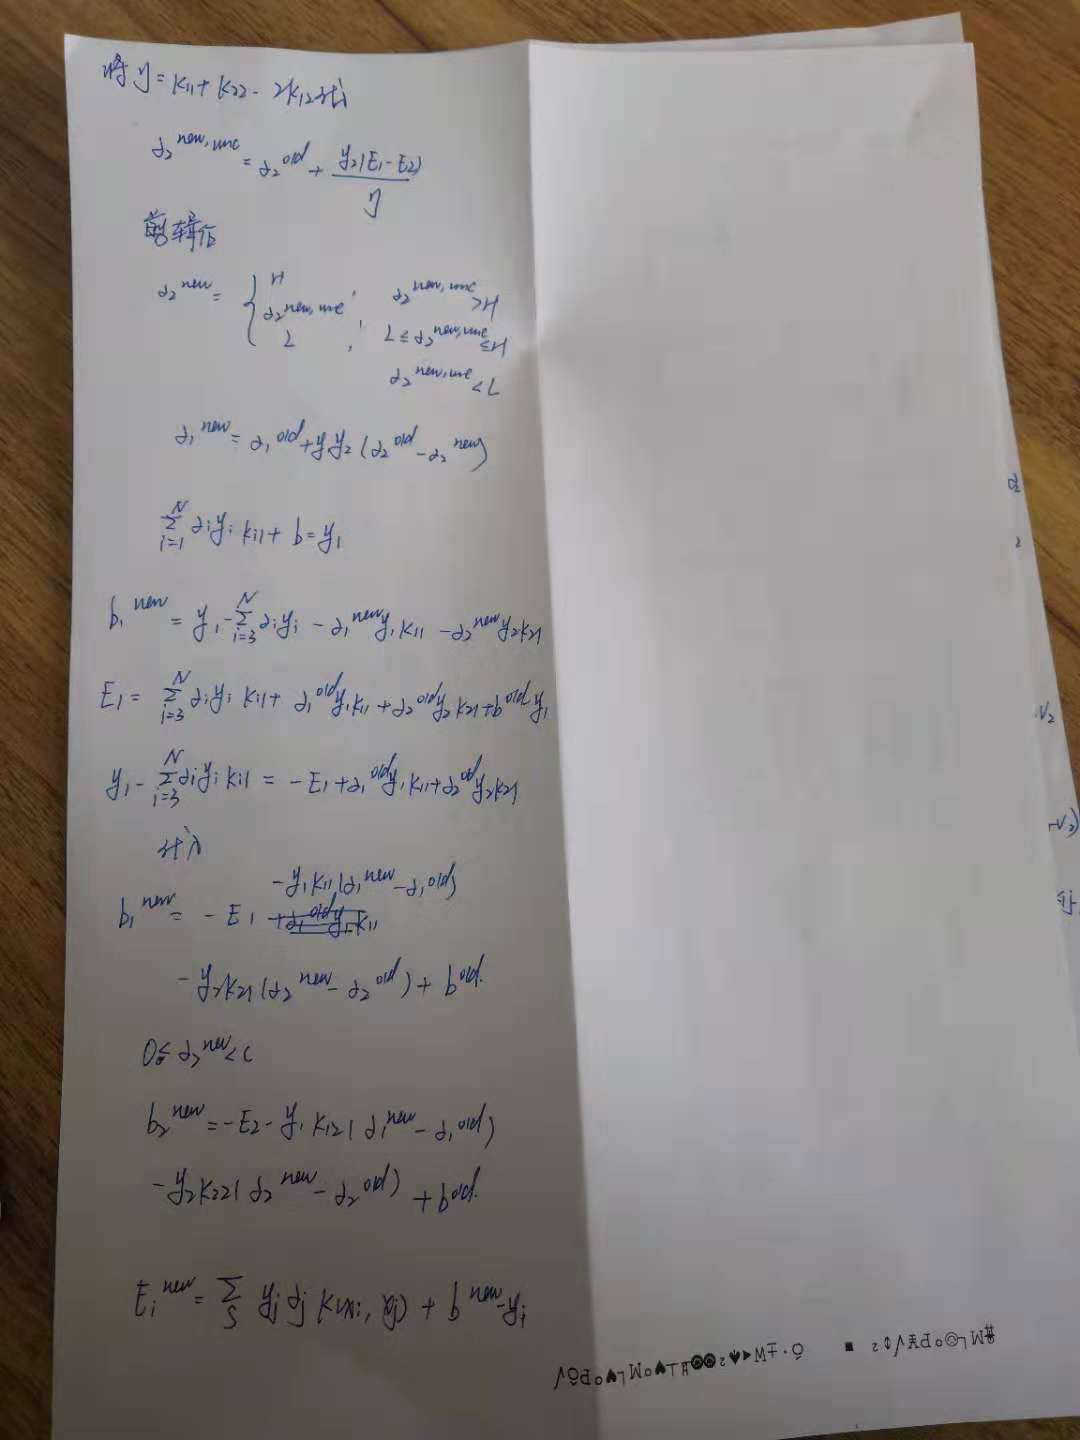 将η=K11+K22-2K12代入
α2^new,unc = α2^old + y2(E1-E2)/η
剪辑后
α2^new = { H, α2^new,unc > H
α2^new,unc, L ≤ α2^new,unc ≤ H
L, α2^new,unc < L
α1^new = α1^old + y y2 (α2^old - α2^new)
Σ_{i=1}^N αi yi Ki1 + b = y1
b1^new = y1 - Σ_{i=3}^N αi yi - α1^new y1 K11 - α2^new y2 K21
E1 = Σ_{i=3}^N αi yi Ki1 + α1^old y1 K11 + α2^old y2 K21 + b^old - y1
y1 - Σ_{i=3}^N αi yi Ki1 = -E1 + α1^old y1 K11 + α2^old y2 K21
代入
b1^new = -E1 - y1 K11 (α1^new - α1^old)
- y2 K21 (α2^new - α2^old) + b^old.
0 ≤ α2^new < C
b2^new = -E2 - y1 K12 (α1^new - α1^old)
- y2 K22 (α2^new - α2^old) + b^old.
Ei^new = Σ_S yj αj K(xi, xj) + b^new - yi